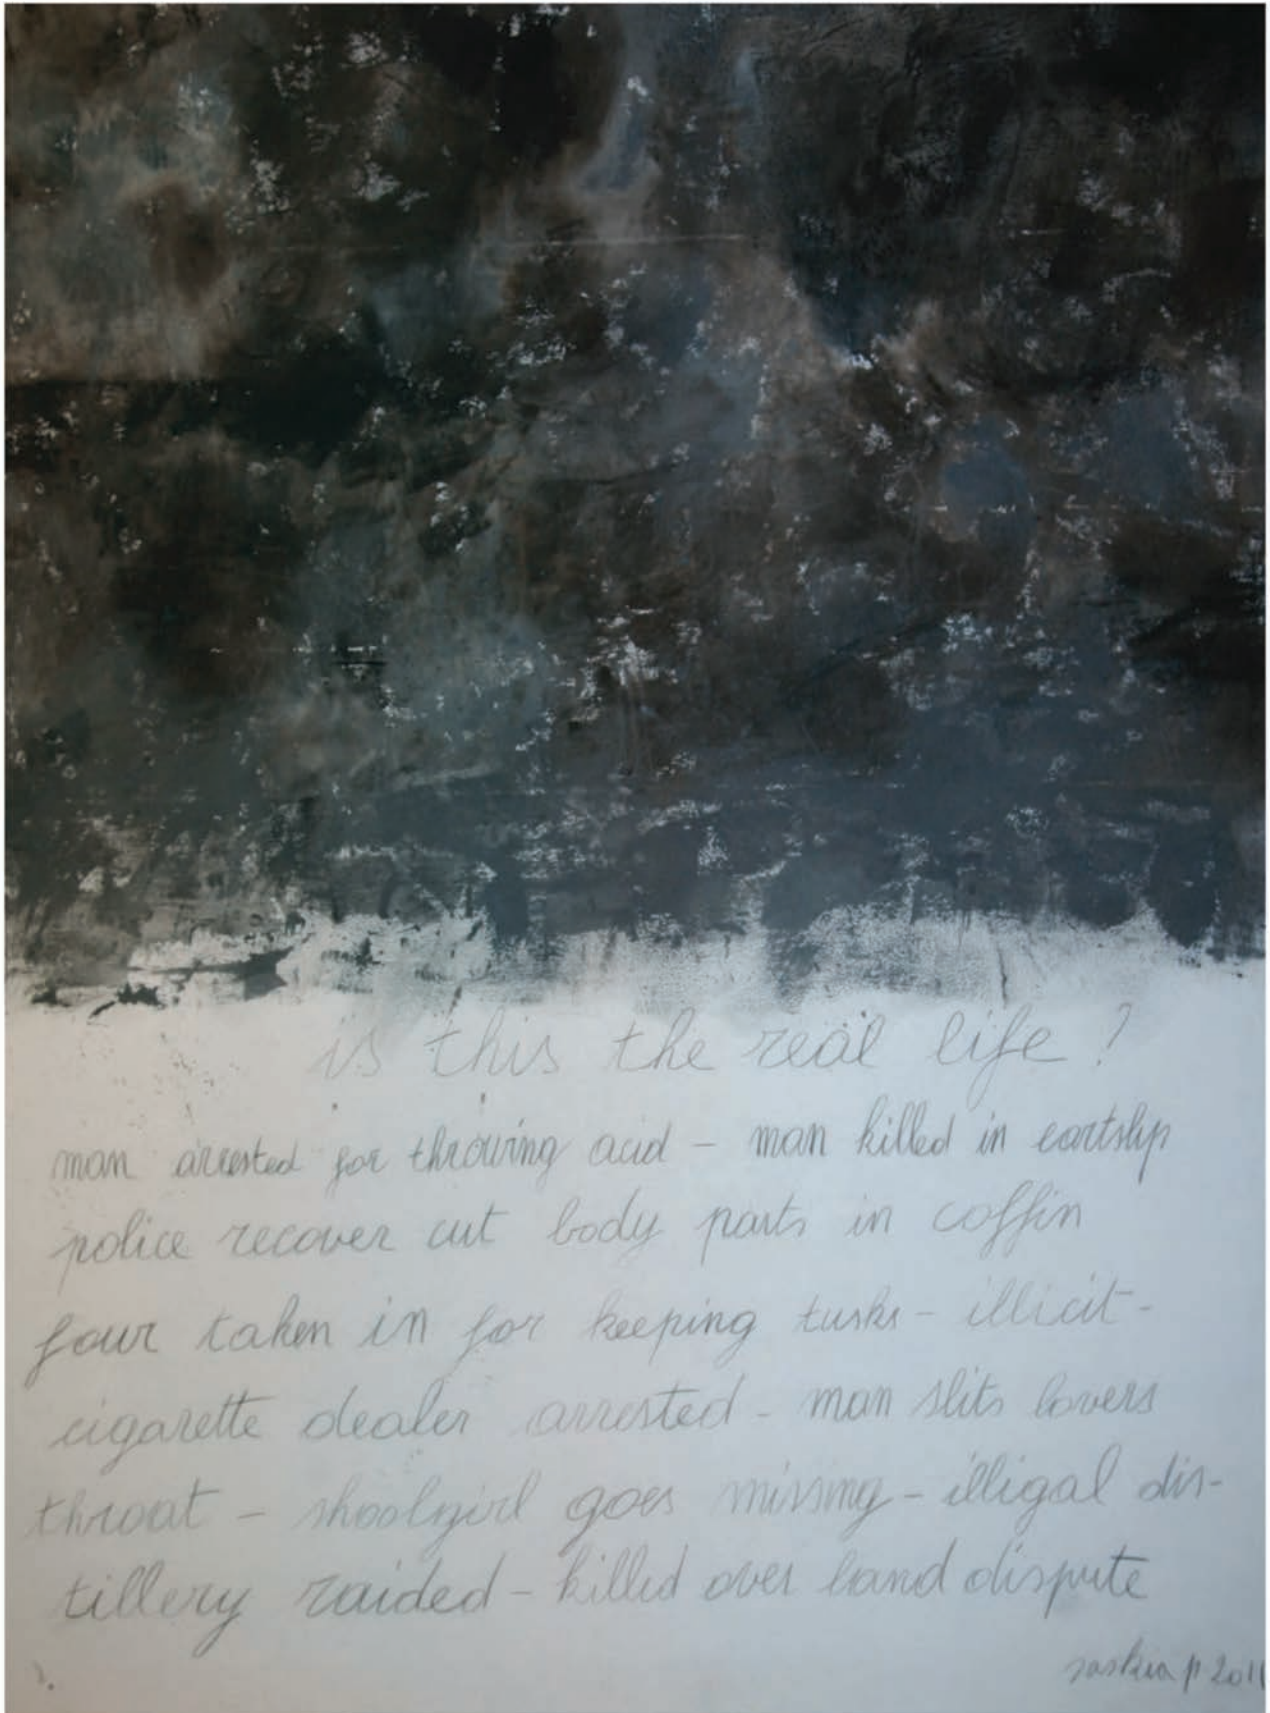 is this the real life?
man arrested for throwing acid – man killed in eartslip
police recover cut body parts in coffin
four taken in for keeping tusks – illicit-
cigarette dealer arrested – man slits lovers
throat – shoolgirl goes missing – illigal dis-
tillery raided – killed over land dispute
saskia p 2011